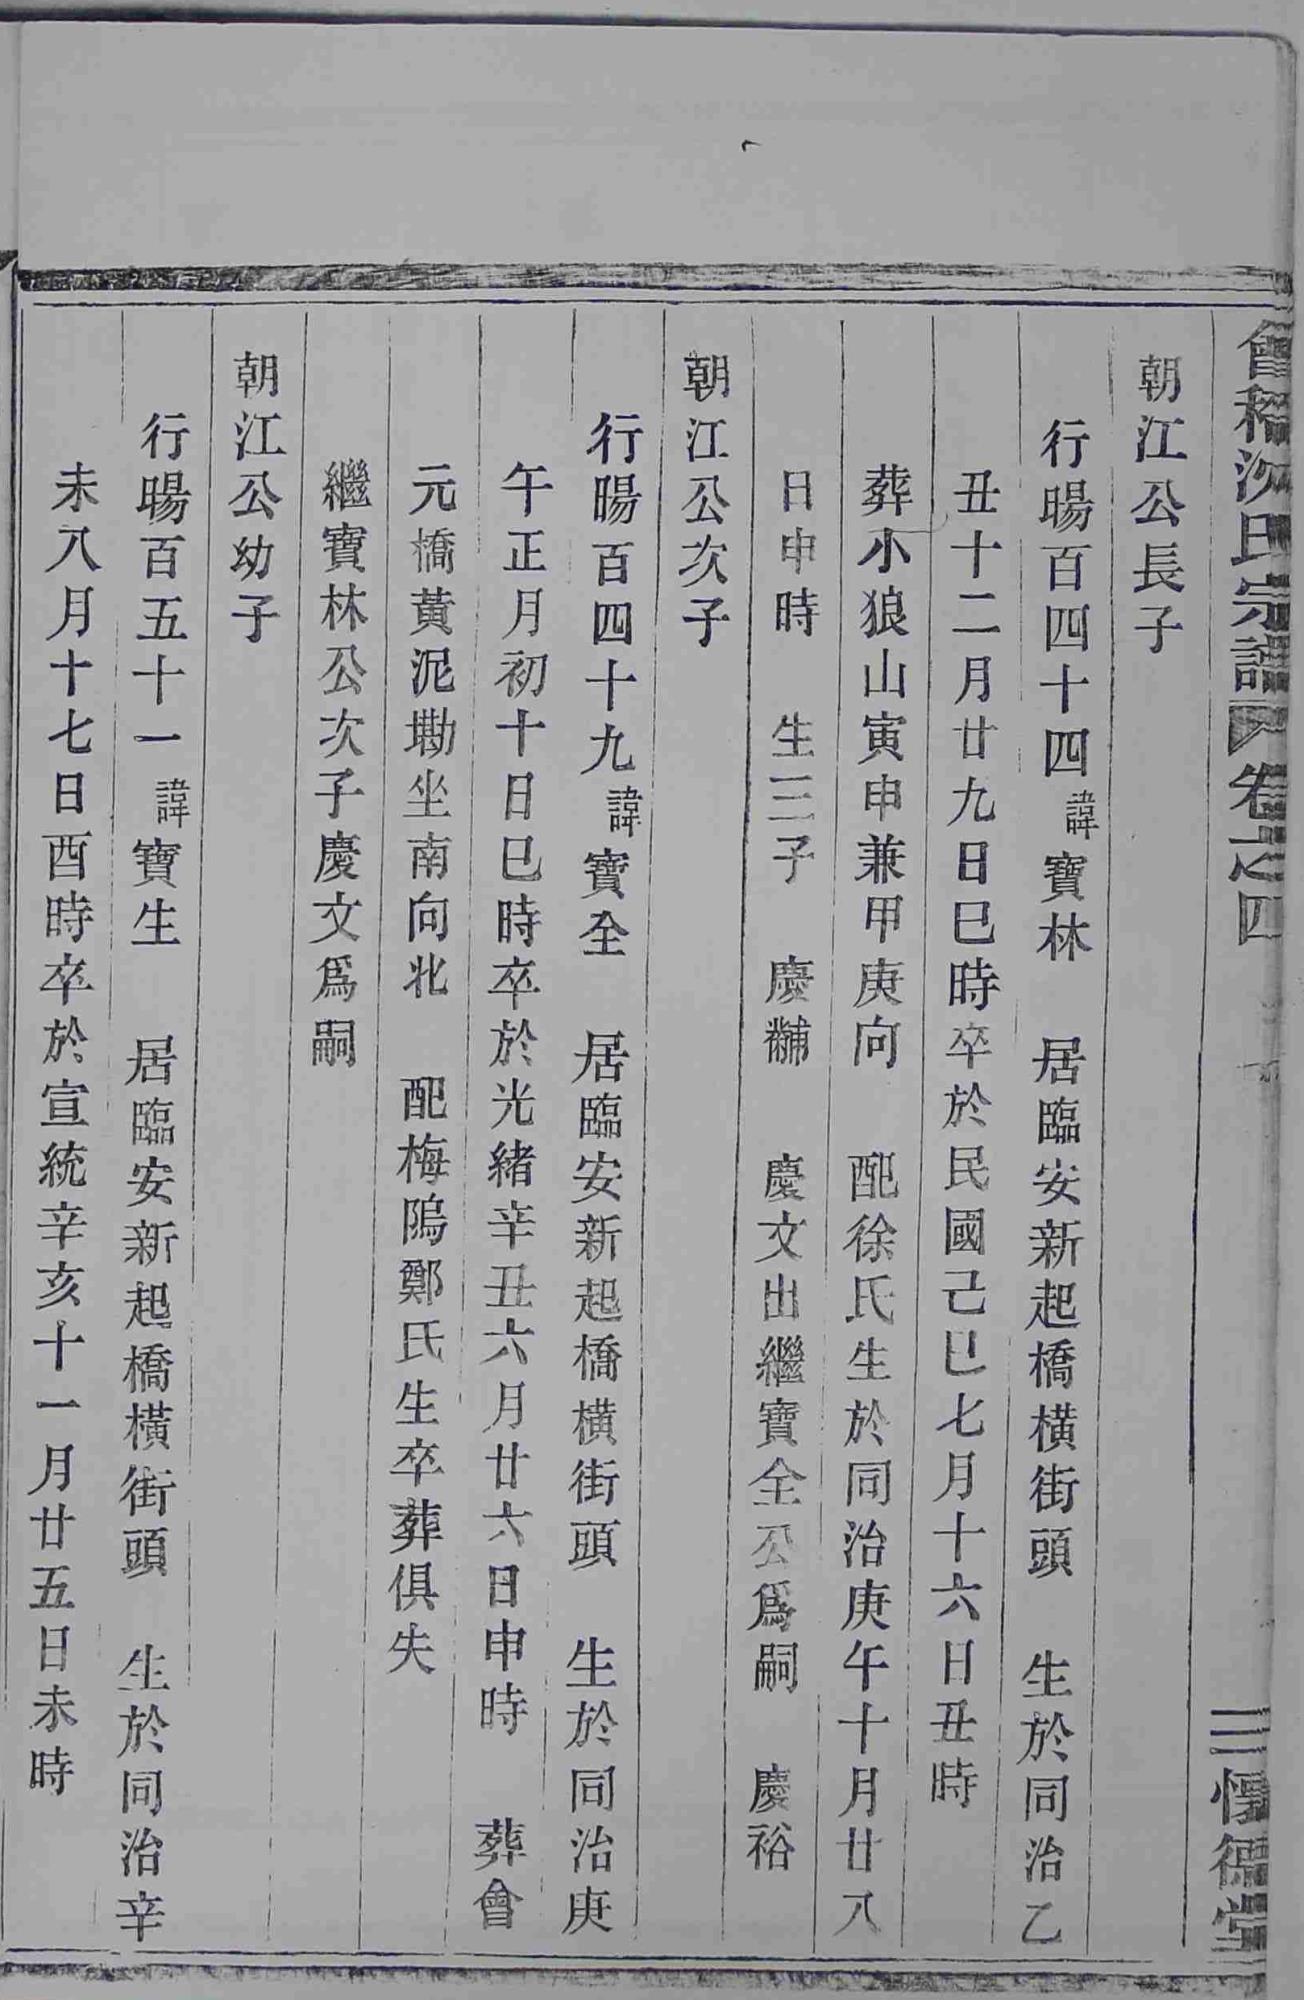 會稽沈氏宗譜 卷之四 三 惇德堂
朝江公長子
行暘百四十四諱寶林 居臨安新起橋橫街頭 生於同治乙
丑十二月廿九日巳時卒於民國己巳七月十六日丑時
葬小狼山寅申兼甲庚向 配徐氏生於同治庚午十月廿八
日申時 生三子 慶黼 慶文出繼寶全公爲嗣 慶裕
朝江公次子
行暘百四十九諱寶全 居臨安新起橋橫街頭 生於同治庚
午正月初十日巳時卒於光緒辛丑六月廿六日申時 葬會
元橋黃泥墈坐南向北 配梅隖鄭氏生卒葬俱失
繼寶林公次子慶文爲嗣
朝江公幼子
行暘百五十一諱寶生 居臨安新起橋橫街頭 生於同治辛
未八月十七日酉時卒於宣統辛亥十一月廿五日未時